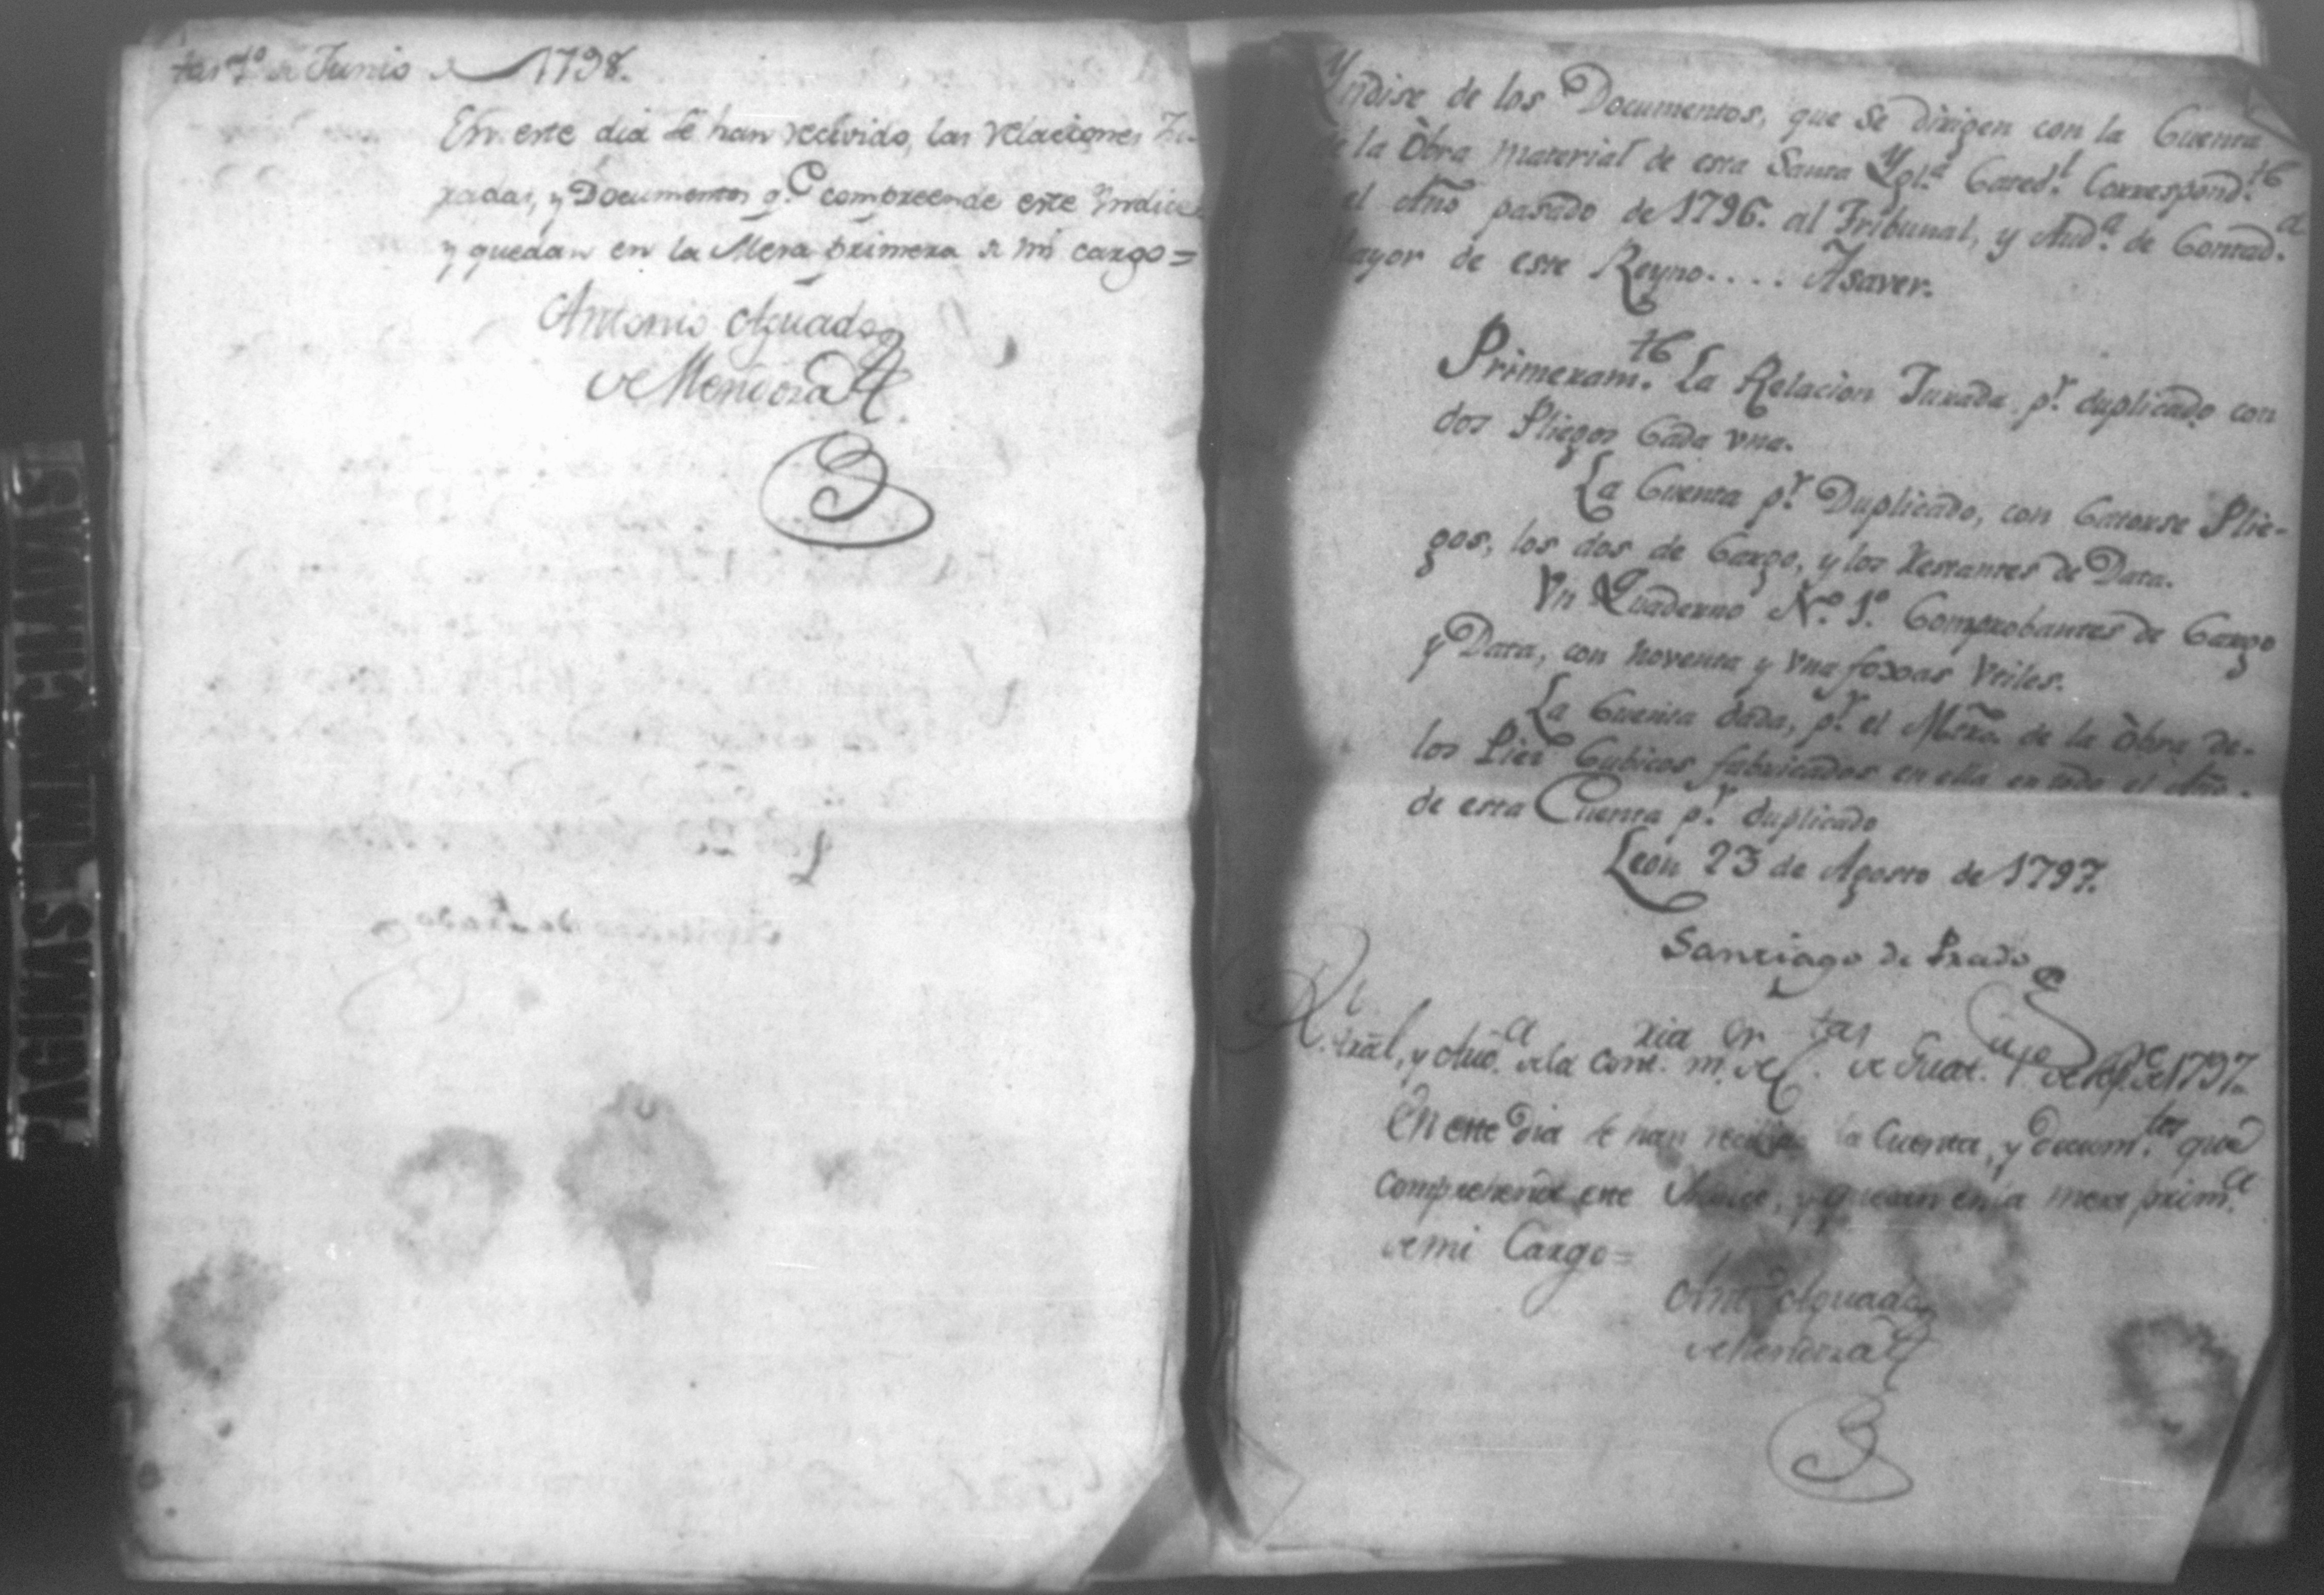 tas 1º de Junio de 1798.
En este dia se han recivido, las relaciones Ju-
radas, y Documentos q.e compreende este Yndice
y quedan en la Mesa primera de mi cargo =
Antonio Aguado
de Mendoza
Yndise de los Documentos, que se dirigen con la Cuenta
de la Obra material de esta Santa Ygl.a Cated.l Correspond.te
a el Año pasado de 1796. al Tribunal, y Aud.a de Contad.a
Mayor de este Reyno.... Asaver.
Primeram.te La Relacion Jurada, p.r duplicado con
dos Pliegos Cada vna.
La Cuenta p.r Duplicado, con Catorse Plie-
gos, los dos de Cargo, y los restantes de Data.
Vn Quaderno N.º 1.º Comprobantes de Cargo
y Data, con noventa y vna foxoas Vtiles.
La Cuenta dada, p.r el Mtro. de la Obra de-
los Pies Cubicos fabricados en ella en todo el Año.
de esta Cuenta p.r duplicado
Leon 23 de Agosto de 1797.
Santiago de Prado
R.l Trãl, y Aud.a de la Cont.ria m.or de C.tas de Guat. de Sep.e de 1797.
En este dia se han recivido la Cuenta, y docum.tos que
comprehende este Yndice, y quedan en la mesa prim.a
de mi Cargo =
Ant.º Aguado
de Mendoza
PAGINAS MANCHADAS